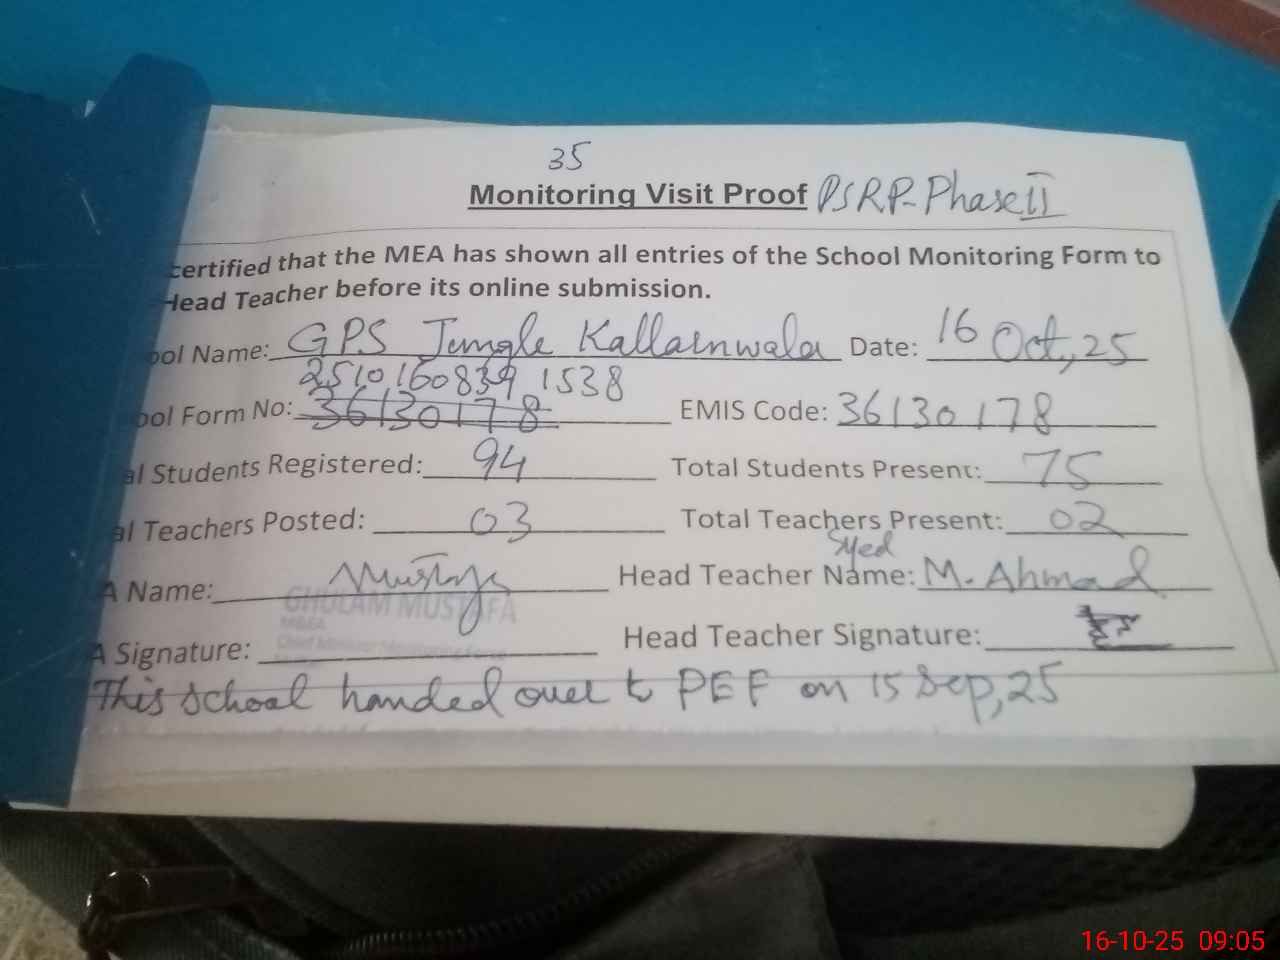 35
Monitoring Visit Proof PSRP-Phase II
certified that the MEA has shown all entries of the School Monitoring Form to
Head Teacher before its online submission.
ool Name: GPS Jungle Kallarnwala Date: 16 Oct, 25
2510160839 1538
ool Form No: 36130178 EMIS Code: 36130178
al Students Registered: 94 Total Students Present: 75
al Teachers Posted: 03 Total Teachers Present: 02
Syed
A Name: Mustafa Head Teacher Name: M. Ahmad
GHULAM MUSTAFA
A Signature: Head Teacher Signature:
Chief Minister Monitoring Force
This school handed over to PEF on 15 Sep, 25
16-10-25 09:05